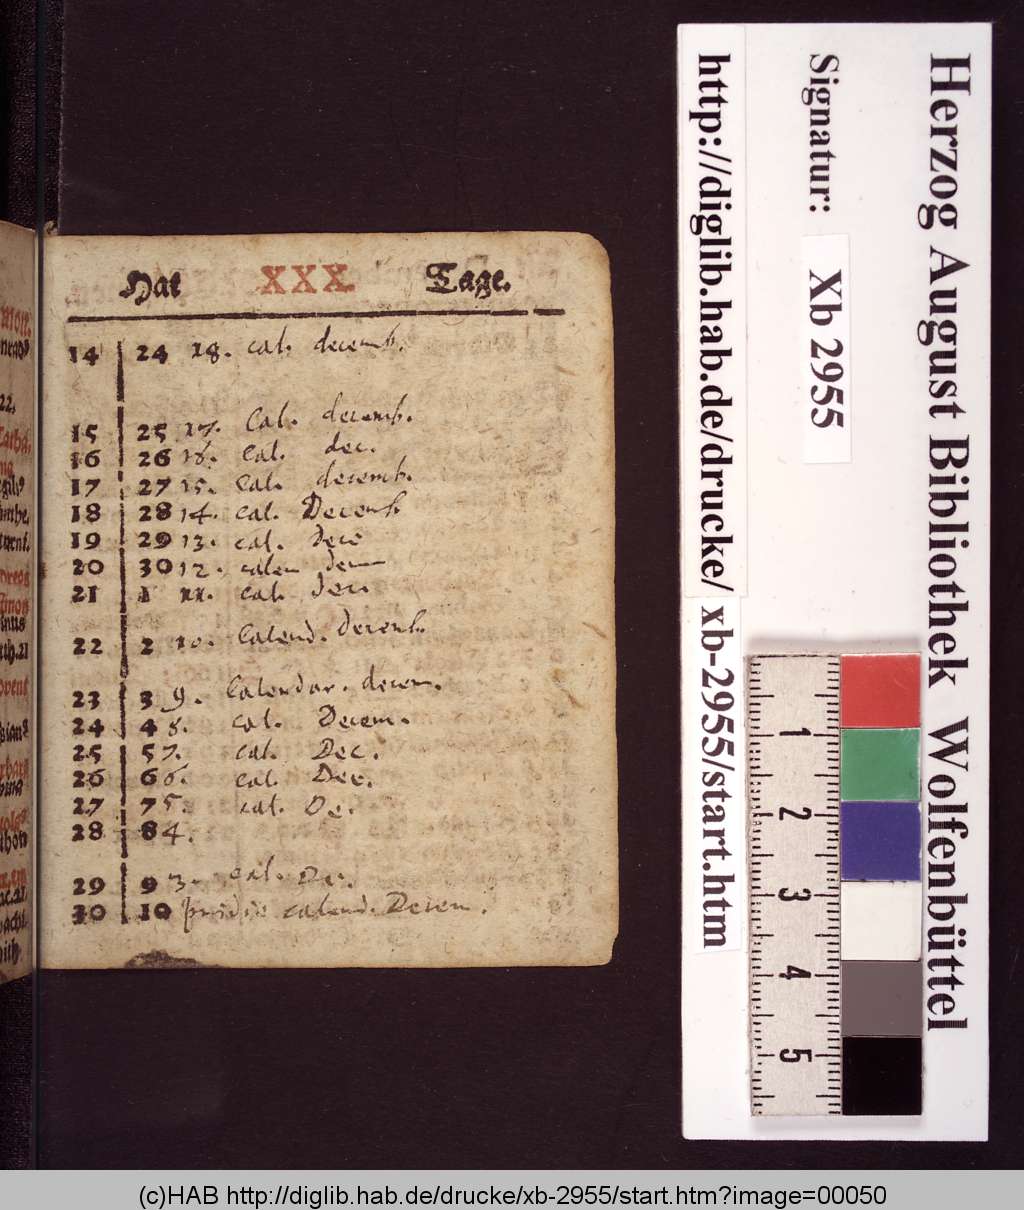 Hat XXX. Tage.
14 24 18. cal. decemb.
15 25 17. Cal. decemb.
16 26 16. Cal. dec.
17 27 15. Cal. decemb.
18 28 14. cal. Decemb.
19 29 13. cal. Dece
20 30 12. calen
21 1 11. cal. dec.
22 2 10. Calend. Decemb.
23 3 9. Calendar. decem.
24 4 8. cal. Decem.
25 5 7. cal. Dec.
26 6 6. cal. Dec.
27 7 5. cal. De.
28 8 4.
29 9 3. cal. De.
30 10 pridie calend. Decem.
22.
uth.21
Herzog August Bibliothek Wolfenbüttel
Signatur: Xb 2955
http://diglib.hab.de/drucke/ xb-2955/start.htm
1
2
3
4
5
(c)HAB http://diglib.hab.de/drucke/xb-2955/start.htm?image=00050